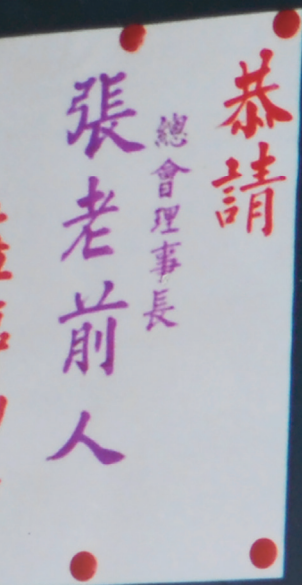 恭請
總會理事長
張老前人